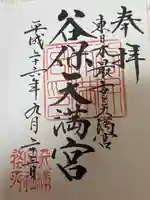 奉拝
東日本最古之天満宮
谷保天満宮
平成二十六年九月二十三日